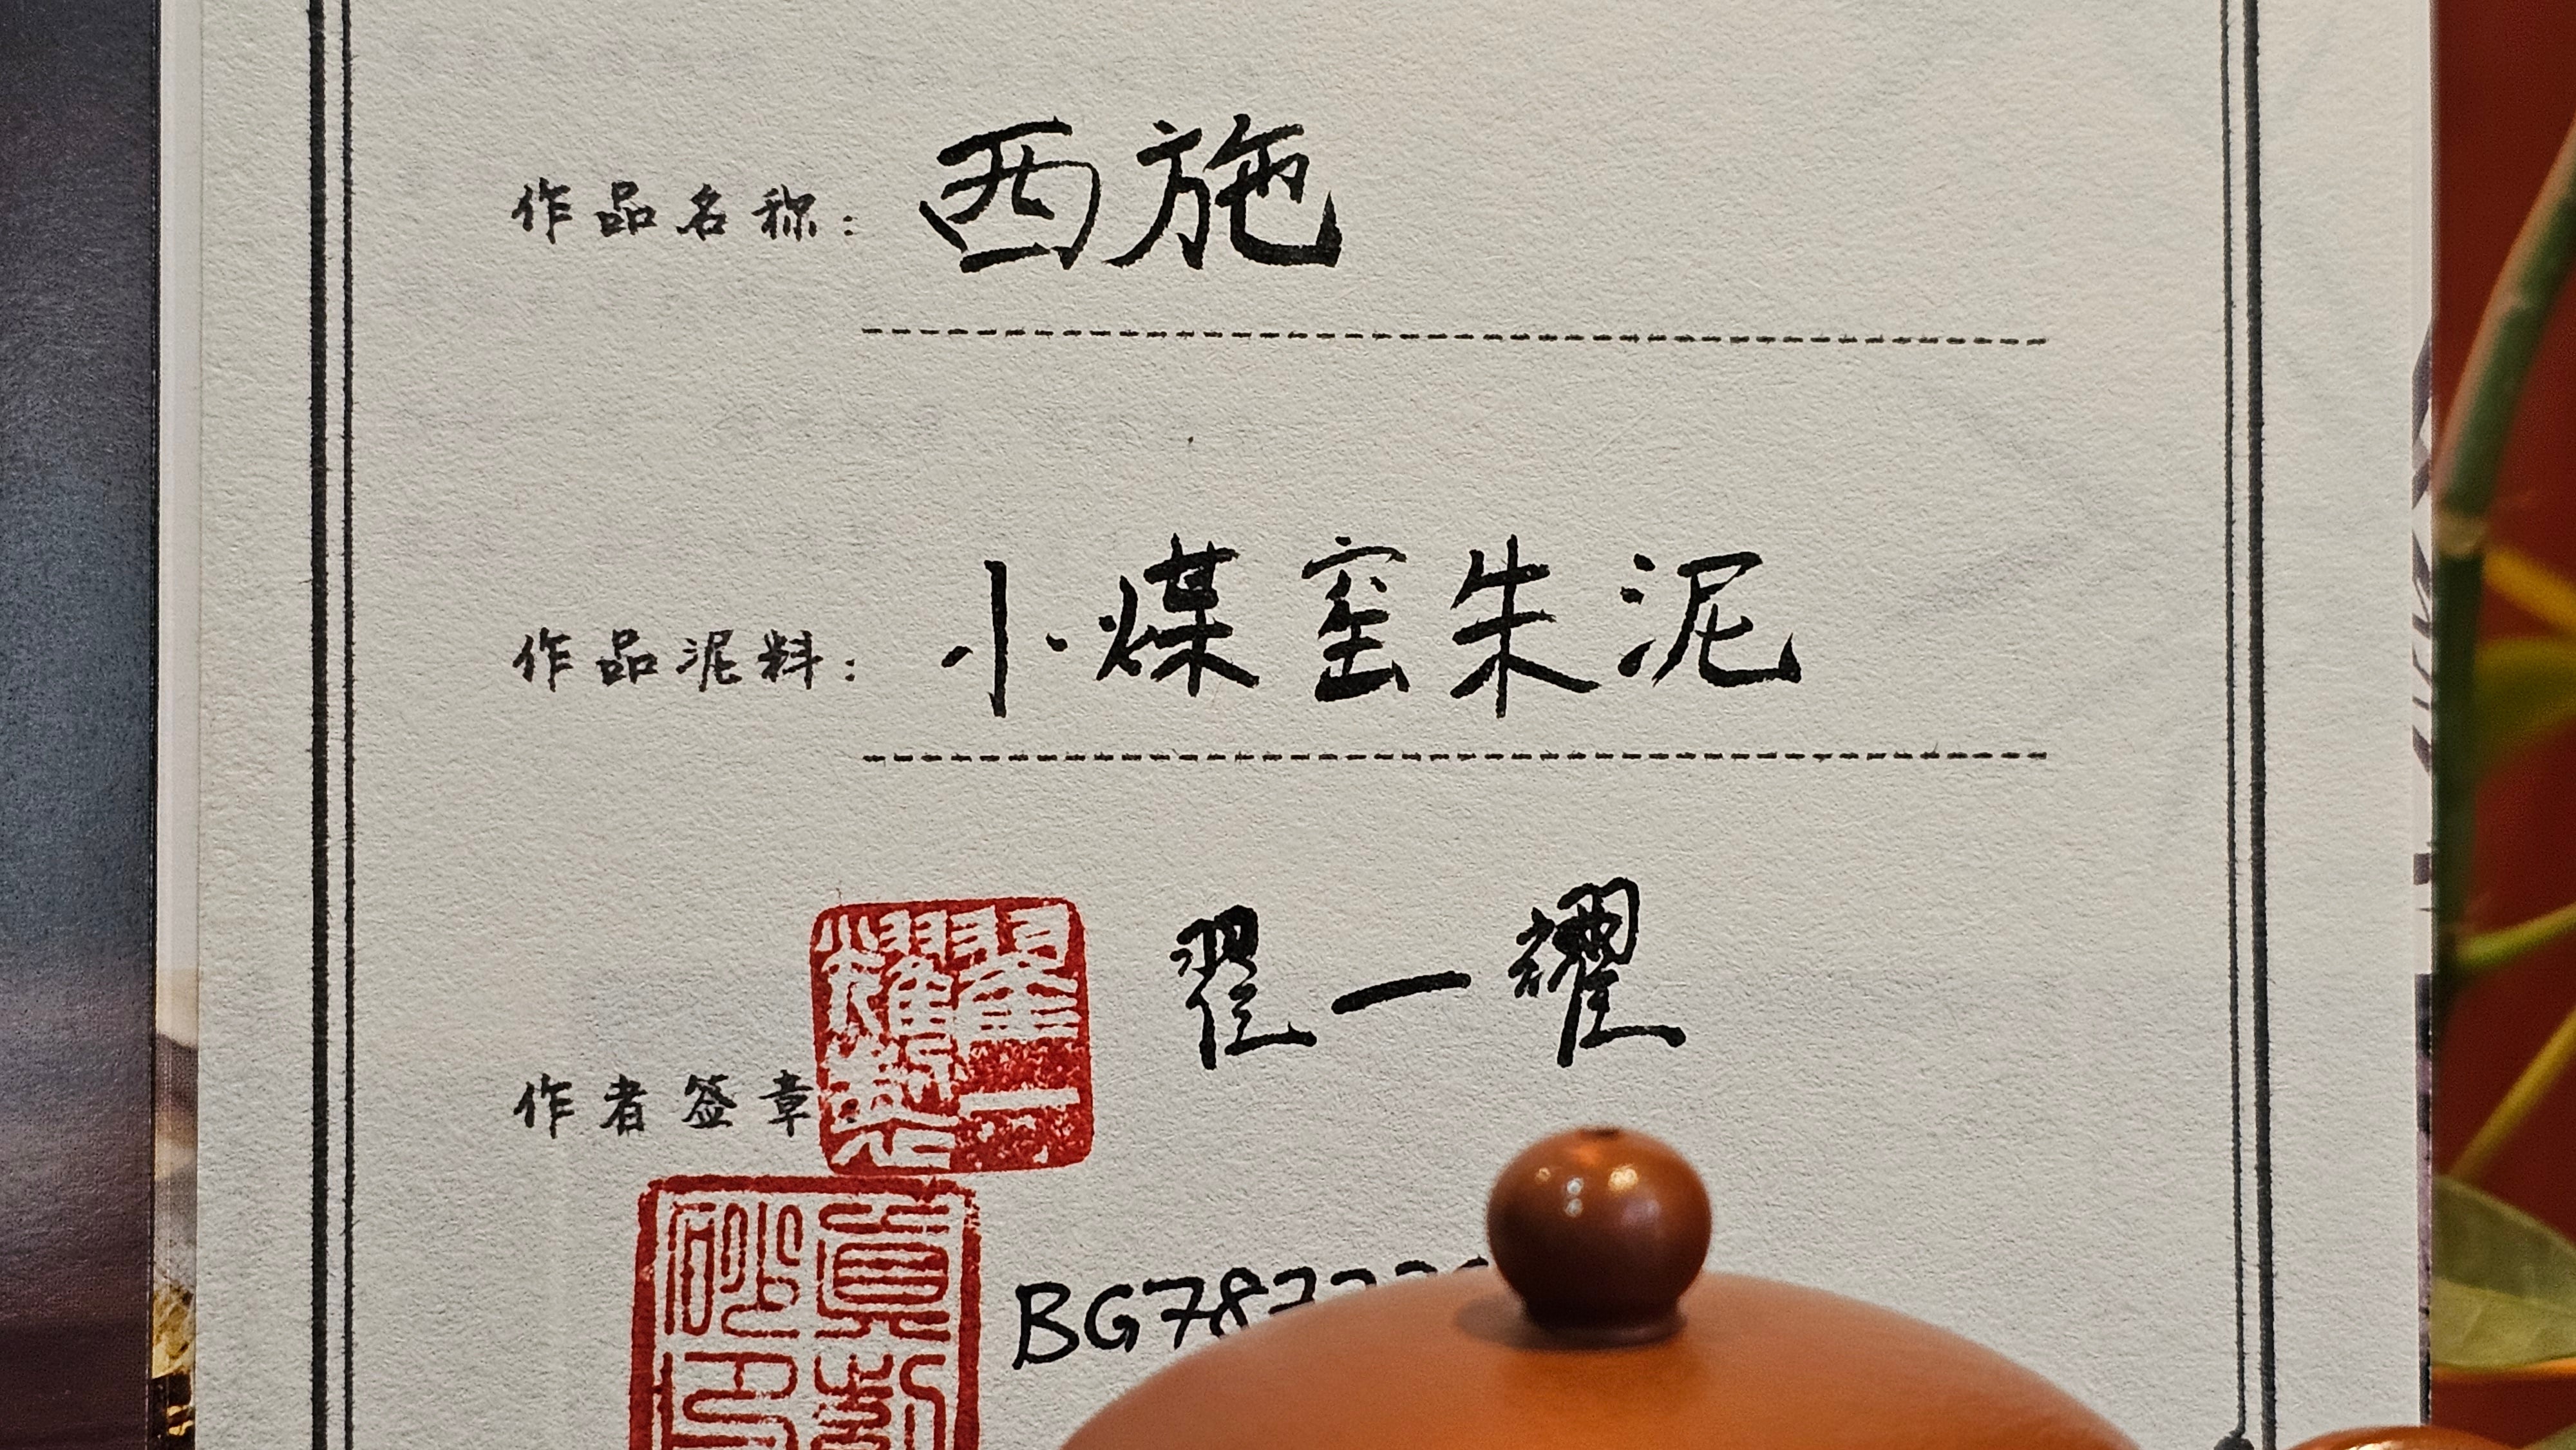 作品名称：西施
作品泥料：小煤窑朱泥
翟一耀
作者签章
BG78